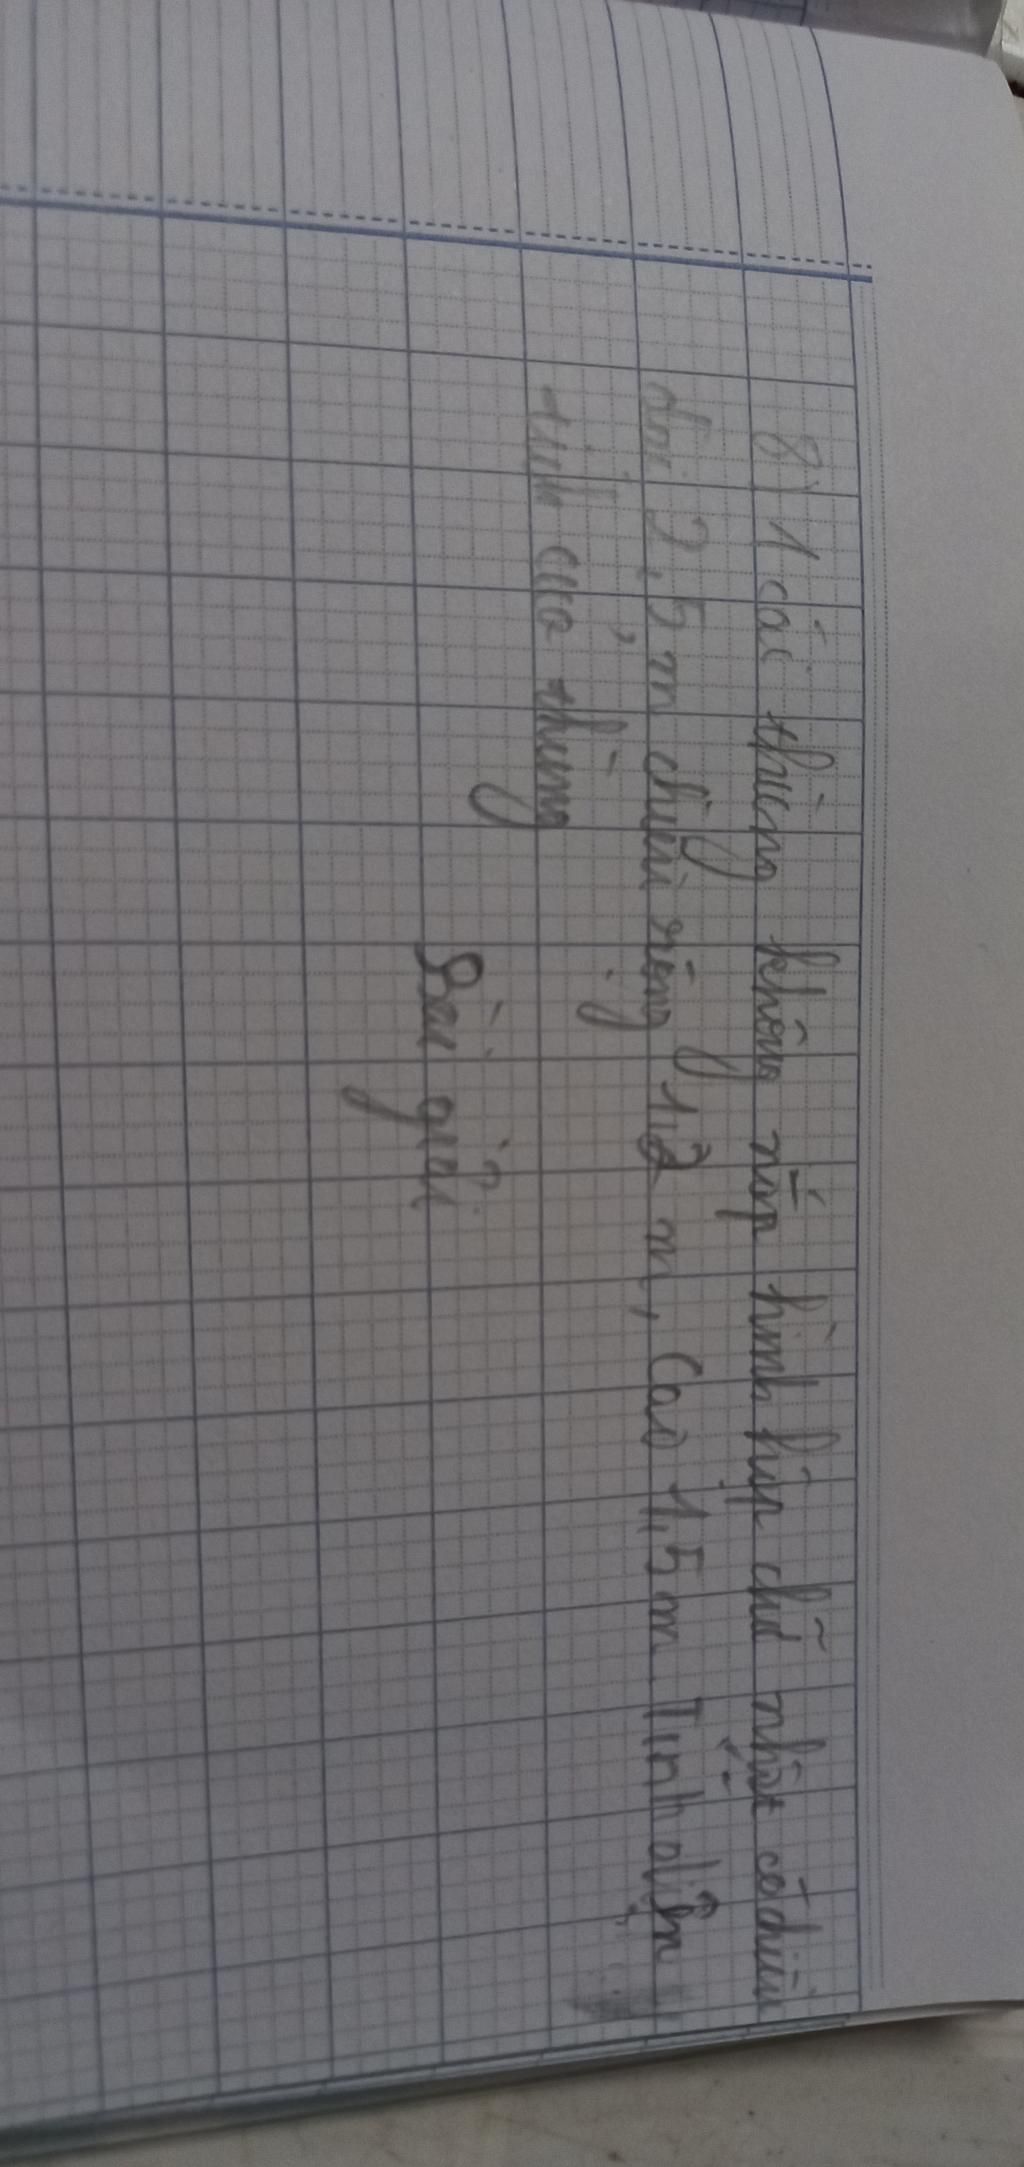 8) 1 cái thùng không nắp hình hộp chữ nhật có chiều
dài 2,5m chiều rộng 1,2 m, cao 1,5m. Tính diện
tích của thùng
Bài giải